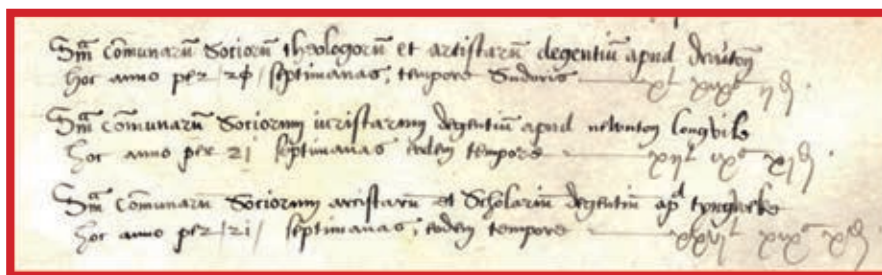 Sm̄a com̄unarū Sociorū theologorū et artistarū degentiū apud
hoc anno per septimanas, tempore Sudoris
Sm̄a com̄unarū Sociorum iuristarum degentiū apud newnton longvile
hoc anno per 21 septimanas eodem tempore
Sm̄a com̄unarū Sociorum artistarū et Scholariū degentiū apd tyngweke
hoc anno per /21/ septimanas, eodem tempore